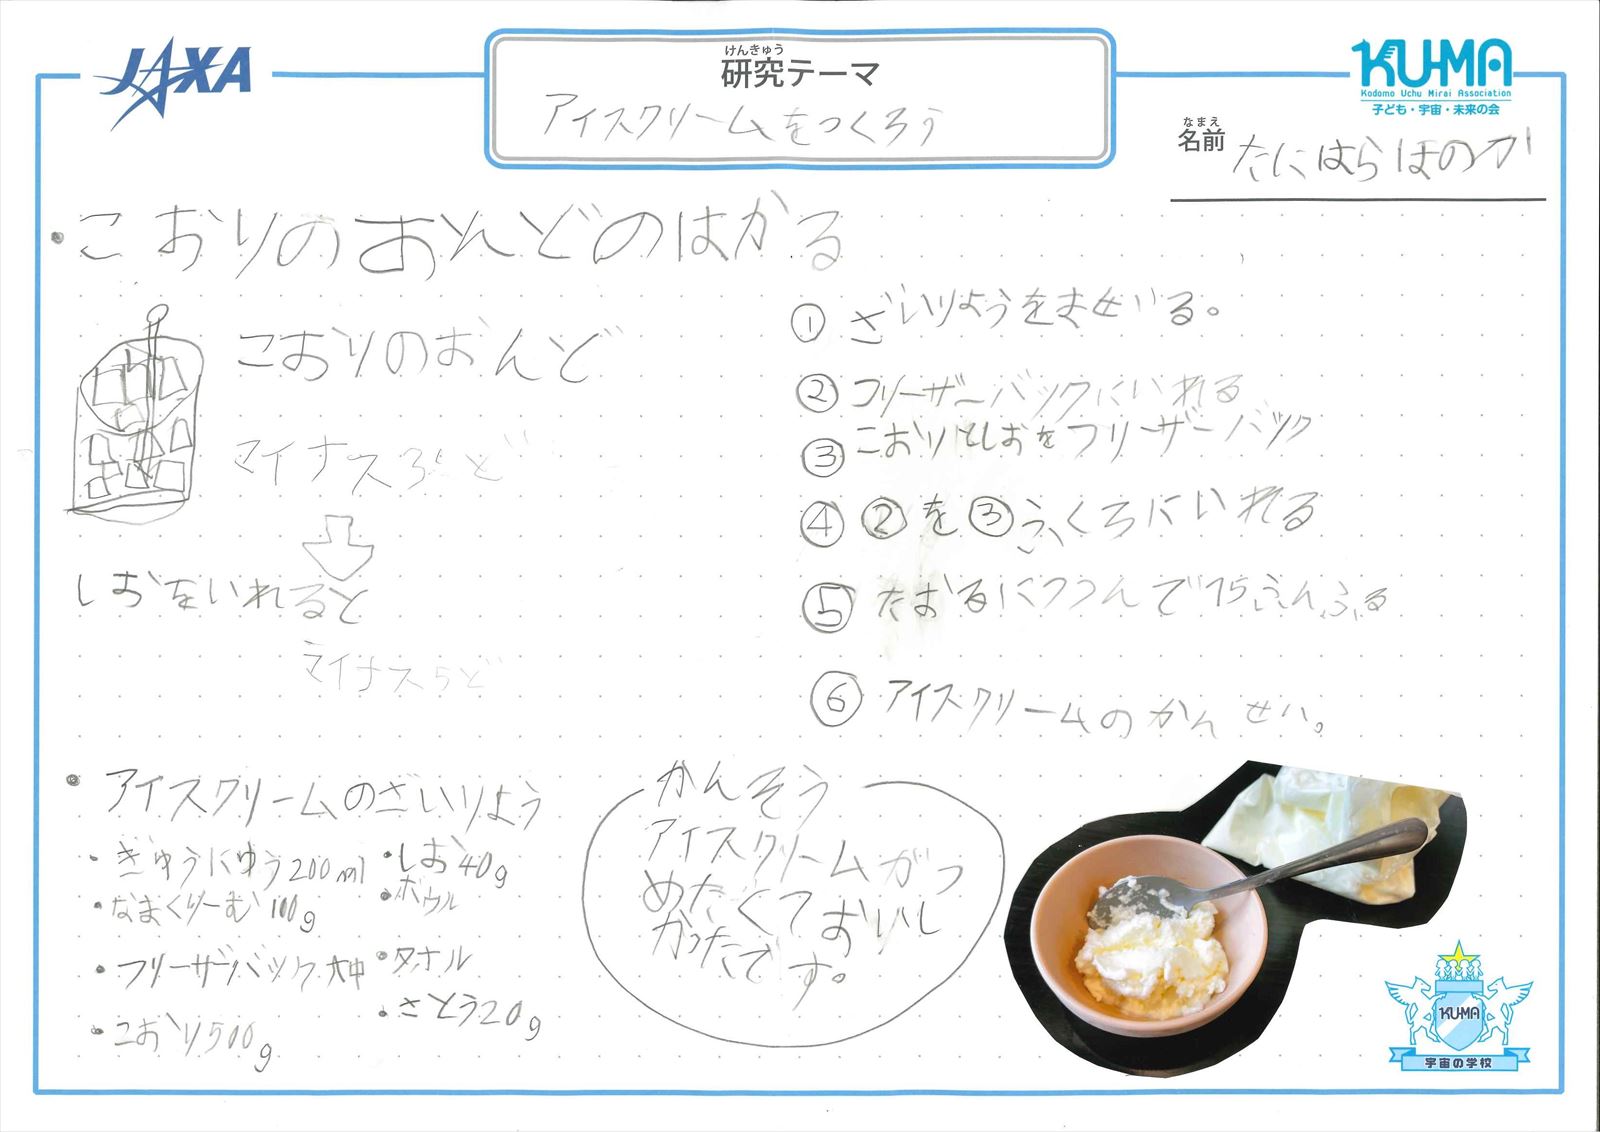 JAXA
けんきゅう
研究テーマ
アイスクリームをつくろう
KU-MA
Kodomo Uchu Mirai Association
子ども・宇宙・未来の会
なまえ
名前 たにはらほのか
・こおりのおんどのはかる
こおりのおんど
マイナス
しおをいれると
マイナス5ど
① ざいりようをませいる。
② フリーザーバックにいれる
③ こおりとしおをフリーザーバック
④ ②を③ふくろにいれる
⑤ たおるにつつんで15ふんふる
⑥ アイスクリームのかんせい。
・アイスクリームのざいりよう
・ぎゅうにゅう200ml
・なまくりーむ100g
・フリーザーバック大中
・こおり500g
・しお40g
・ボウル
・タオル
・さとう20g
かんそう
アイスクリームがつ
めたくておいし
かったです。
KU-MA
宇宙の学校